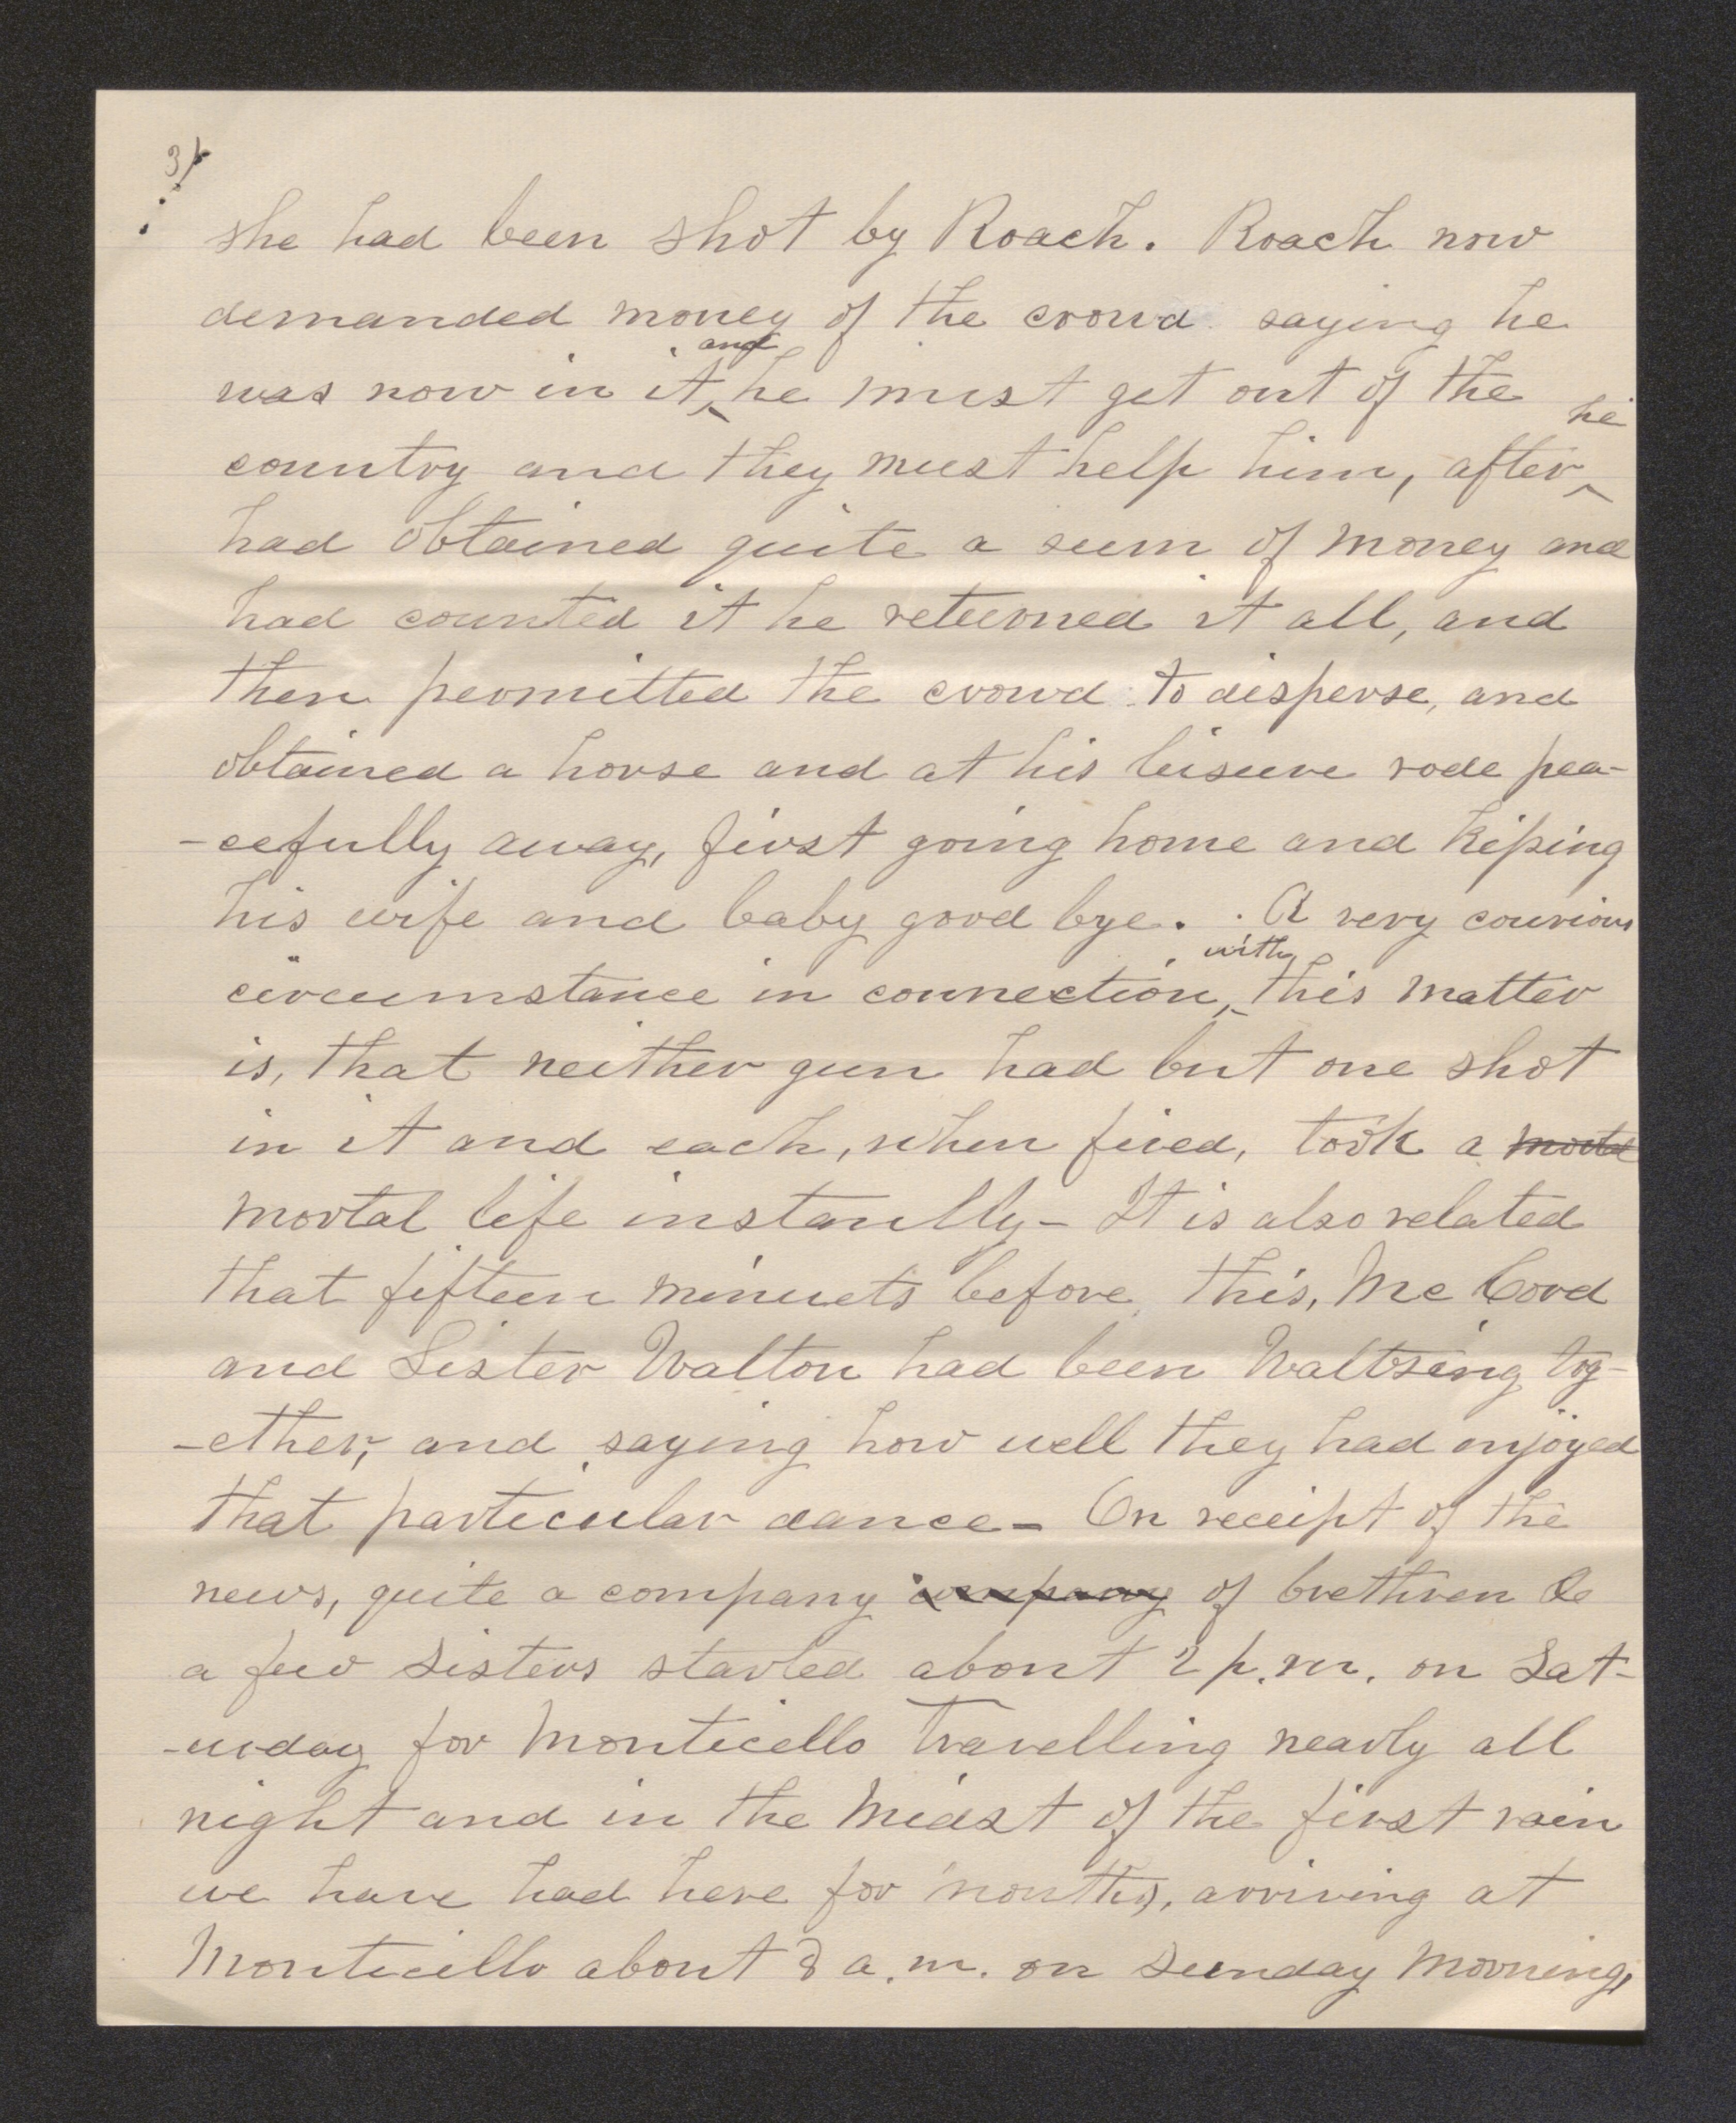 3/
she had been shot by Roach. Roach now
demanded money of the crowd saying he
was now in it, and he must get out of the
country and they must help him, after he
had obtained quite a sum of money and
had counted it he returned it all, and
then permitted the crowd to disperse, and
obtained a horse and at his leisure rode pea-
-cefully away, first going home and kissing
his wife and baby good bye. A very courious
circumstance in connection, with this matter
is, that neither gun had but one shot
in it and each, when fired, took a
mortal life instantly - It is also related
that fifteen minuets before this, Mc Cord
and Sister Walton had been Waltzing tog-
-ether, and saying how well they had enjoyed
that particular dance - On receipt of the
news, quite a company company of brethren &
a few sisters started about 2 p.m. on Sat-
-urday for Monticello travelling nearly all
night and in the midst of the first rain
we have had here for months, arriving at
Monticello about 8 a.m. on Sunday Morning,